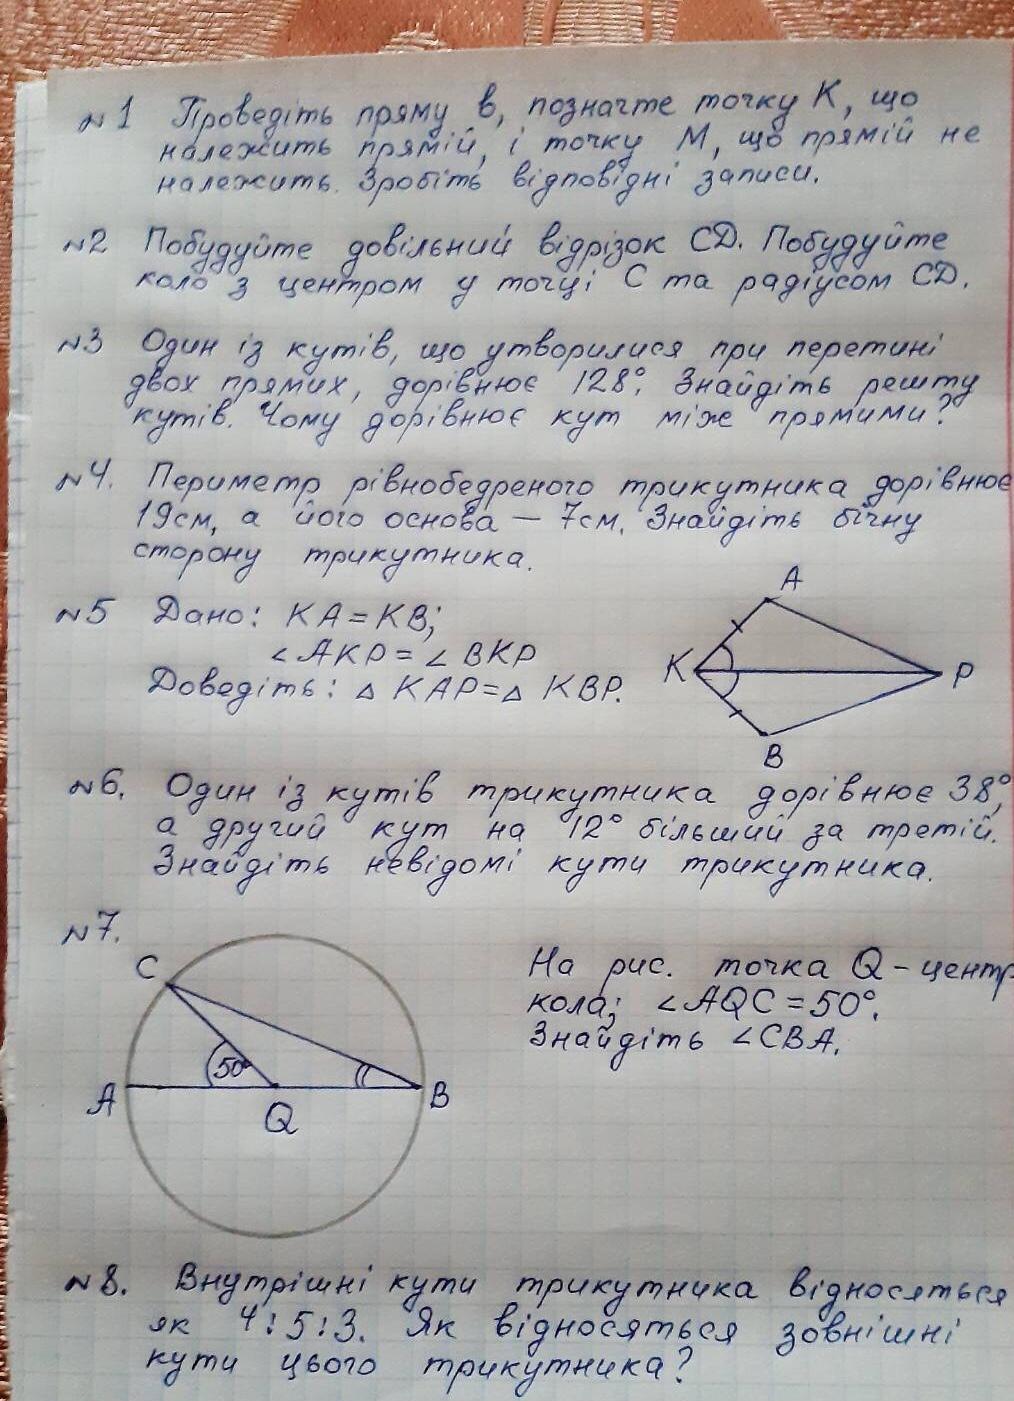 №1 Проведіть пряму в, позначте точку К, що
належить прямій, і точку М, що прямій не
належить. Зробіть відповідні записи.
№2 Побудуйте довільний відрізок CD. Побудуйте
коло з центром у точці С та радіусом CD.
№3 Один із кутів, що утворилися при перетині
двох прямих, дорівнює 128°. Знайдіть решту
кутів. Чому дорівнює кут між прямими?
№4. Периметр рівнобедреного трикутника дорівнює
19см, а його основа — 7см. Знайдіть бічну
сторону трикутника.
№5 Дано: KA = KB;
∠AKP = ∠BKP
Доведіть: △ KAP = △ KBP.
A
K
P
B
№6. Один із кутів трикутника дорівнює 38°,
а другий кут на 12° більший за третій.
Знайдіть невідомі кути трикутника.
№7.
C
50°
A
Q
B
На рис. точка Q – центр
кола; ∠AQC = 50°.
Знайдіть ∠CBA.
№8. Внутрішні кути трикутника відносяться
як 4:5:3. Як відносяться зовнішні
кути цього трикутника?